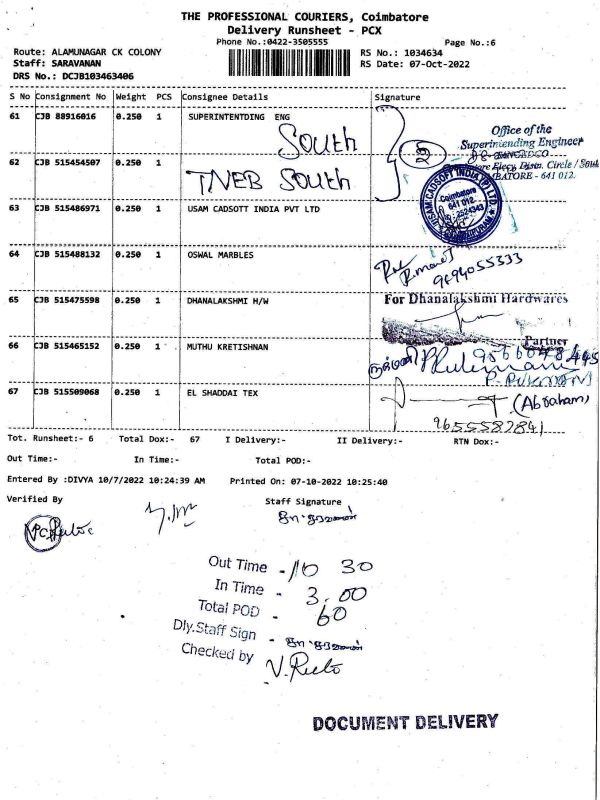 THE PROFESSIONAL COURIERS, Coimbatore
Delivery Runsheet - PCX
Phone No.:0422-3505555
Page No.:6
Route: ALAMUNAGAR CK COLONY
RS No.: 1034634
Staff: SARAVANAN
RS Date: 07-Oct-2022
DRS No.: DCJB103463406
S No Consignment No Weight PCS Consignee Details Signature
61 CJB 88916016 0.250 1 SUPERINTENTDING ENG
South
2
Office of the
Superintending Engineer
TANGEDCO
Coimbatore Elecy. Distn. Circle / South
COIMBATORE - 641 012.
62 CJB 515454507 0.250 1
TNEB South
USAM CADSOFT INDIA (P) LTD
Coimbatore
641 012.
2524343
63 CJB 515486971 0.250 1 USAM CADSOTT INDIA PVT LTD
64 CJB 515488132 0.250 1 OSWAL MARBLES
9494055333
65 CJB 515475598 0.250 1 DHANALAKSHMI H/W
For Dhanalakshmi Hardwares
Partner
66 CJB 515465152 0.250 1 MUTHU KRETISHNAN
67 CJB 515509068 0.250 1 EL SHADDAI TEX
(Abraham)
9655587841
Tot. Runsheet:- 6 Total Dox:- 67 I Delivery:- II Delivery:- RTN Dox:-
Out Time:- In Time:- Total POD:-
Entered By :DIVYA 10/7/2022 10:24:39 AM Printed On: 07-10-2022 10:25:40
Verified By Staff Signature
Out Time - 10 30
In Time - 3.00
Total POD - 60
Dly.Staff Sign -
Checked by
DOCUMENT DELIVERY